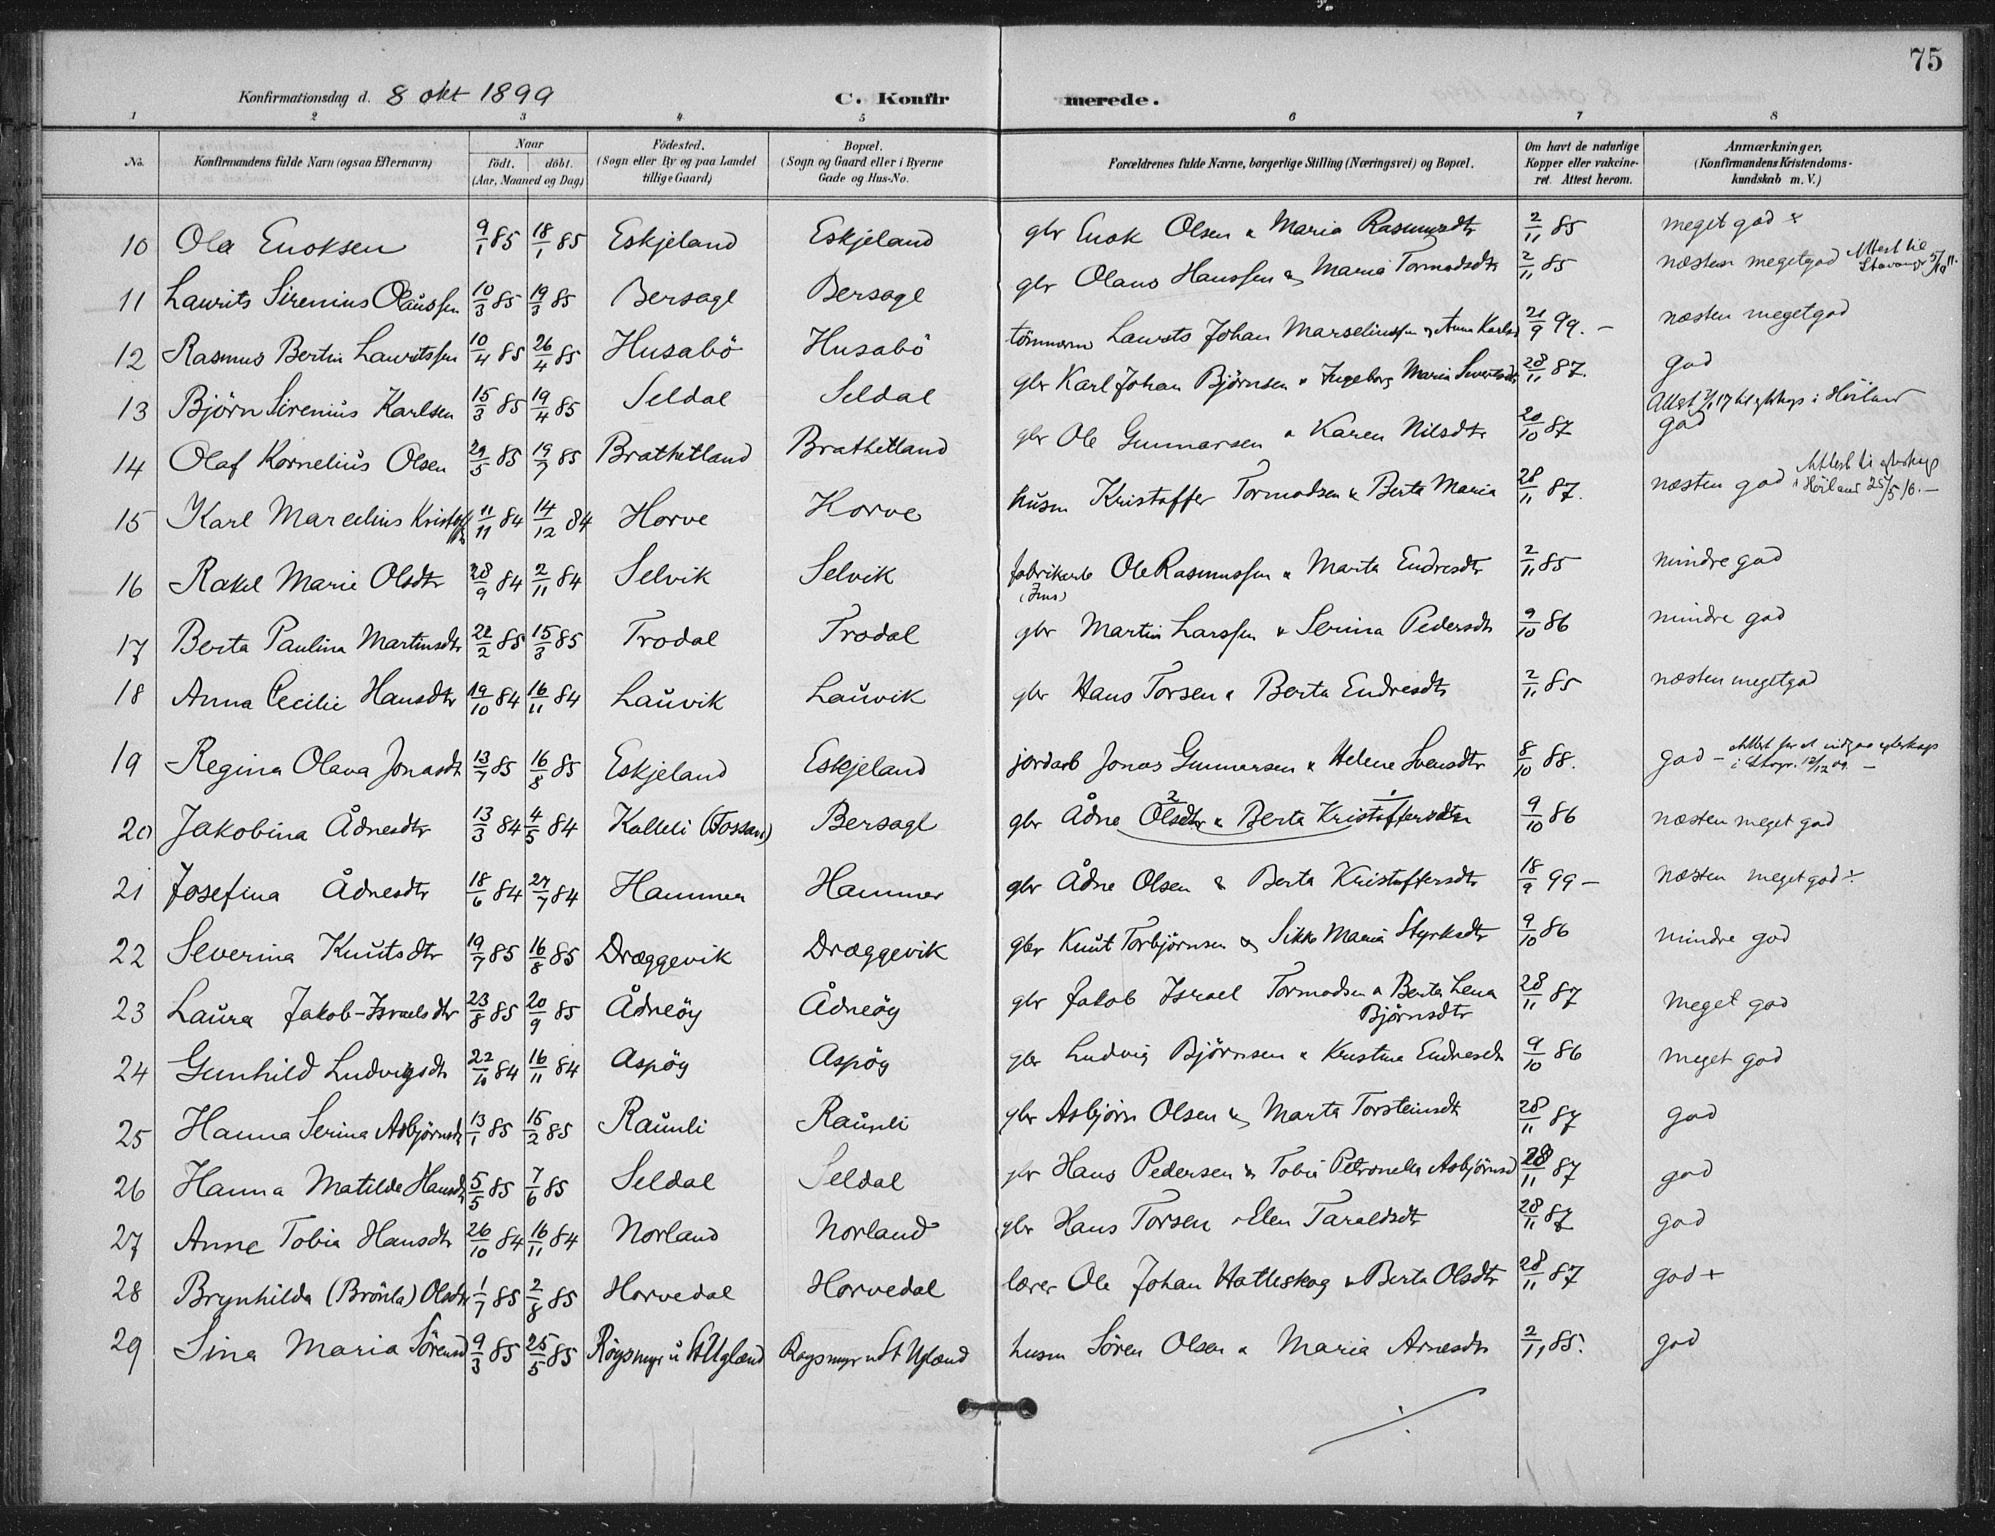 75
Konfirmationsdag d. 8 okt 1899 C. Konfir merede.
1 2 3 4 5 6 7 8
No. Konfirmandens fulde Navn (ogsaa Efternavn) Naar födt. döbt. (Aar, Maaned og Dag) Födested. (Sogn eller By og paa Landet tillige Gaard) Bopæl. (Sogn og Gaard eller i Byerne Gade og Hus-No. Forældrenes fulde Navne, borgerlige Stilling (Næringsvei) og Bopæl. Om havt de naturlige Kopper eller vakcineret. Attest herom. Anmærkninger, (Konfirmandens Kristendomskundskab m. V.)
10 Ola Enoksen 9/1 85 18/1 85 Eskjeland Eskjeland gbr Enok Olsen & Maria Rasmusdtr 2/11 85 meget god
11 Laurits Sirenius Olaussen 10/3 85 19/3 85 Bersagl Bersagl gbr Olaus Hanssen & Maria Tormodsdtr 2/11 85 næsten megetgod Attest til
12 Rasmus Bertin Lauritssen 10/4 85 26/4 85 Husabö Husabö Laurits Johan Marselinssen & Anna Karlsd 21/9 99. – næsten megetgod
13 Björn Sirenius Karlsen 15/3 85 19/4 85 Seldal Seldal gbr Karl Johan Björnsen & Ingeborg Maria 28/11 87. god
14 Olaf Kornelius Olsen 29/5 85 19/7 85 Brathetland Brathetland gbr Ole Gunnarsen & Karen Nilsdtr 20/10 87 Attest i Höiland god
15 Karl Marcelius Kristoff 11/11 84 14/12 84 Horve Horve husm Kristoffer Tormodsen & Berta Maria 28/11 87. næsten god Attest til i Höiland 25/5 16. –
16 Rakel Marie Olsdtr 28/9 84 2/11 84 Selvik Selvik Ole Rasmussen & Marta Endresdtr 2/11 85 mindre god
17 Berta Paulina Martinsdtr 22/2 85 15/3 85 Trodal Trodal gbr Martin Larssen & Serina Pedersdtr 9/10 86 mindre god
18 Anna Cecilie Hansdtr 19/10 84 16/11 84 Lauvik Lauvik gbr Hans Torsen & Berta Endresdtr 2/11 85 næsten megetgod
19 Regina Olava Jonasdt 13/7 85 16/8 85 Eskjeland Eskjeland jordarb Jonas Gunnarsen & Helene Svensdtr 8/10 88. god – Attest for at indgaa 12/12 09. –
20 Jakobina Ådnesdtr 13/3 84 4/5 84 Kalleli (Fossan) Bersagl gbr Ådne Olsdtr & Berta Kristoffersdtr 9/10 86 næsten meget god
21 Josefina Ådnesdtr 18/6 84 27/7 84 Hammer Hammer gbr Ådne Olsen & Berta Kristoffersdtr 18/9 99 – Næsten megetgod
22 Severina Knutsdtr 19/7 85 16/8 85 Dræggevik Dræggevik gbr Knut Torbjörnsen & Sikke Maria Styrksdtr 9/10 86 mindre god
23 Laura Jakob-Israelsdtr 23/8 85 20/9 85 Ådneöy Ådneöy gbr Jakob Israel Tormodsen & Berta Lena Björnsdtr 28/11 87 Meget god
24 Gunhild Ludvigsdtr 22/10 84 16/11 84 Aspöy Aspöy gbr Ludvig Björnsen & Kristina Endresdtr 9/10 86 meget god
25 Hanna Serina Asbjörnsdt 13/1 85 15/2 85 Raunli Raunli gbr Asbjörn Olsen & Marta Torsteinsdt 28/11 87 god
26 Hanna Matilde Hansdt 5/5 85 7/6 85 Seldal Seldal gbr Hans Pedersen & Tobia Petronella Asbjörnsd 28/11 87 god
27 Anne Tobia Hansdtr 26/10 84 16/11 84 Norland Norland gbr Hans Torsen & Elen Taraldsdtr 28/11 87 god
28 Brynhilda (Brönla) Olsdtr 1/7 85 2/8 85 Horvedal Horvedal lærer Ole Johan Hatleskog & Berta Olsdtr 28/11 87 god +
29 Sina Maria Sörensd 9/3 85 25/5 85 Röysmyr u St Ugland Röysmyr u St Ugland husm Sören Olsen & Maria Arnesdtr 2/11 85. god